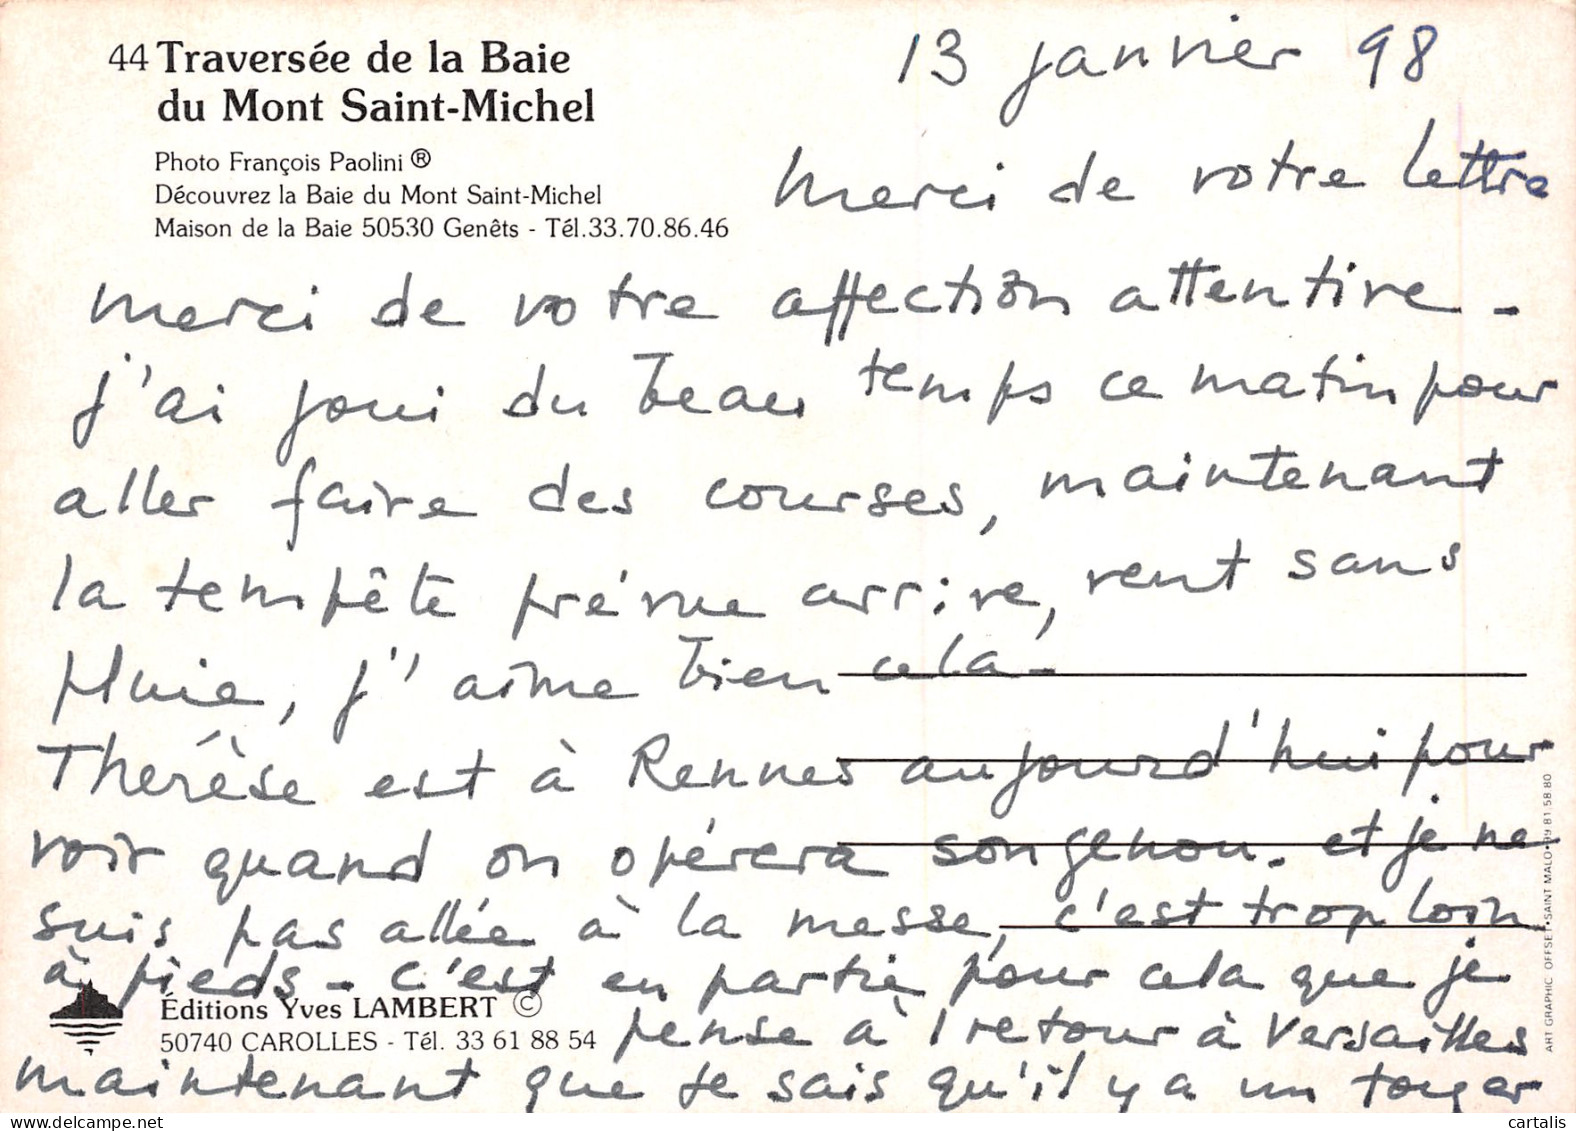 44 Traversée de la Baie
du Mont Saint-Michel
Photo François Paolini ®
Découvrez la Baie du Mont Saint-Michel
Maison de la Baie 50530 Genêts - Tél.33.70.86.46
13 janvier 98
Merci de votre lettre
merci de votre affection attentive -
j'ai joui du beau temps ce matin pour
aller faire des courses, maintenant
la tempête prévue arrive, vent sans
pluie, j'aime bien cela -
Thérèse est à Rennes aujourd'hui pour
voir quand on opérera son genou. et je ne
suis pas allée à la messe, c'est trop loin
à pieds - c'est en partie pour cela que je
pense à 1 retour à Versailles
maintenant que je sais qu'il y a un foyer
Éditions Yves LAMBERT ©
50740 CAROLLES - Tél. 33 61 88 54
ART GRAPHIC OFFSET • SAINT MALO • 99 81 58 80
cartalis